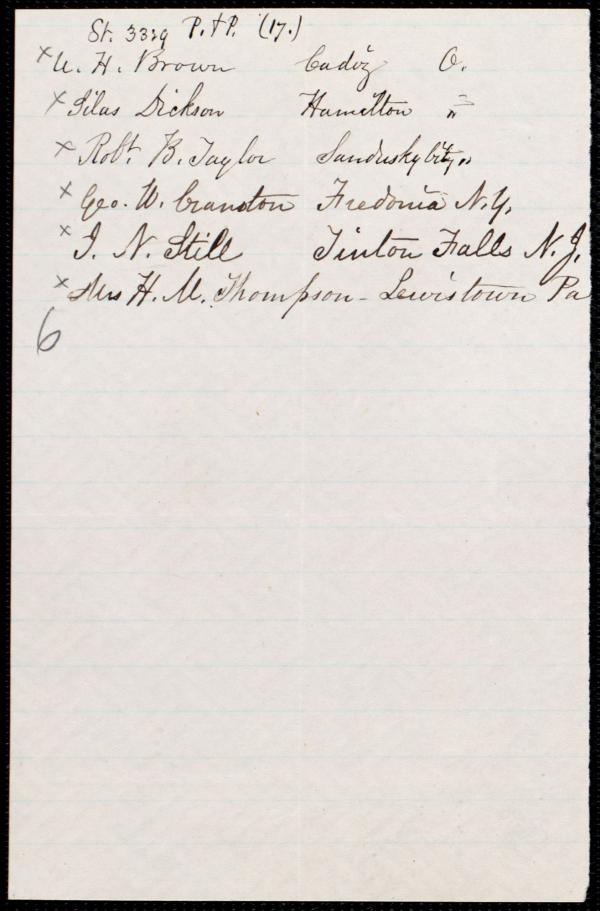 St. 3329 P. & P. (17.)
x U. H. Brown Cadiz O.
x Silas Dickson Hamilton "
x Robt. B. Taylor Sandusky City "
x Geo. W. Cranston Fredonia N.Y.
x I. N. Still Tinton Falls N.J.
x Mrs H. M. Thompson - Lewistown Pa
6